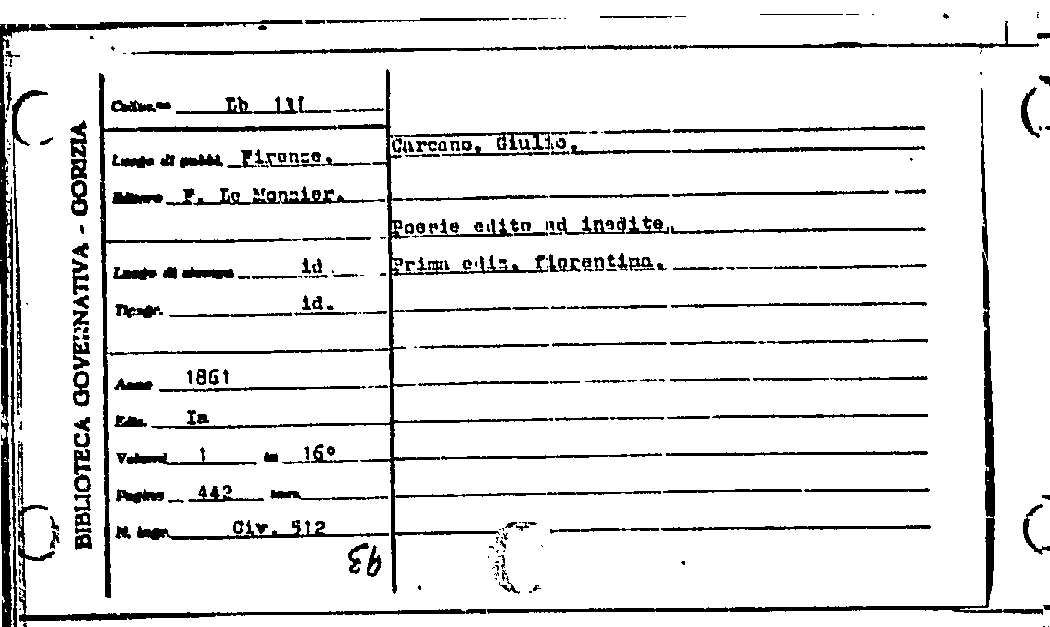 BIBLIOTECA GOVERNATIVA - GORIZIA
Lb 111
Luogo di pubbl. Firenze.
Editore F. Le Monnier.
Luogo di stampa id
Tipogr. id.
Anno 1861
Ediz. Ia
Volumi 1 in 16°
Pagine 442
N. ingr. Civ. 512
93
Carcano, Giulio.
Poesie edite ed inedite.
Prima ediz. fiorentina.